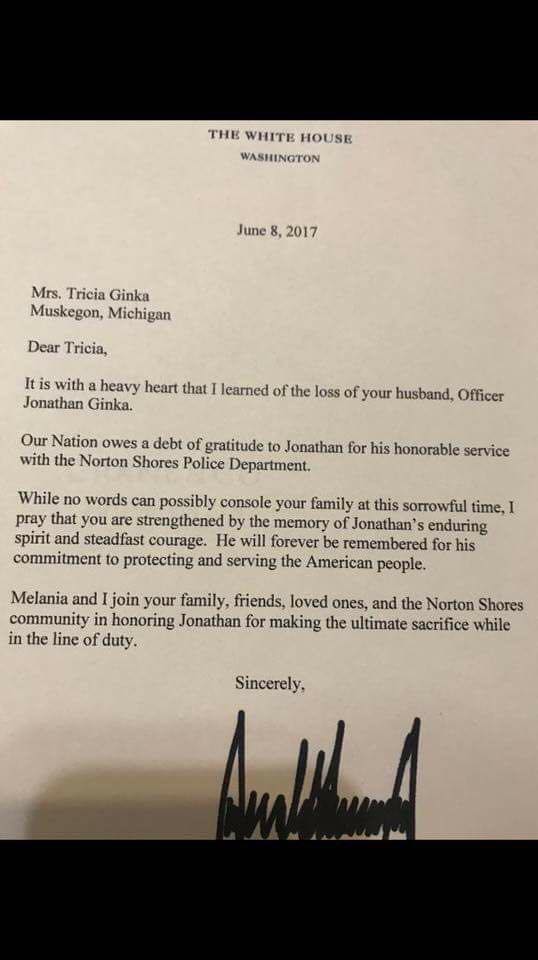 THE WHITE HOUSE
WASHINGTON
June 8, 2017
Mrs. Tricia Ginka
Muskegon, Michigan
Dear Tricia,
It is with a heavy heart that I learned of the loss of your husband, Officer
Jonathan Ginka.
Our Nation owes a debt of gratitude to Jonathan for his honorable service
with the Norton Shores Police Department.
While no words can possibly console your family at this sorrowful time, I
pray that you are strengthened by the memory of Jonathan's enduring
spirit and steadfast courage.  He will forever be remembered for his
commitment to protecting and serving the American people.
Melania and I join your family, friends, loved ones, and the Norton Shores
community in honoring Jonathan for making the ultimate sacrifice while
in the line of duty.
Sincerely,